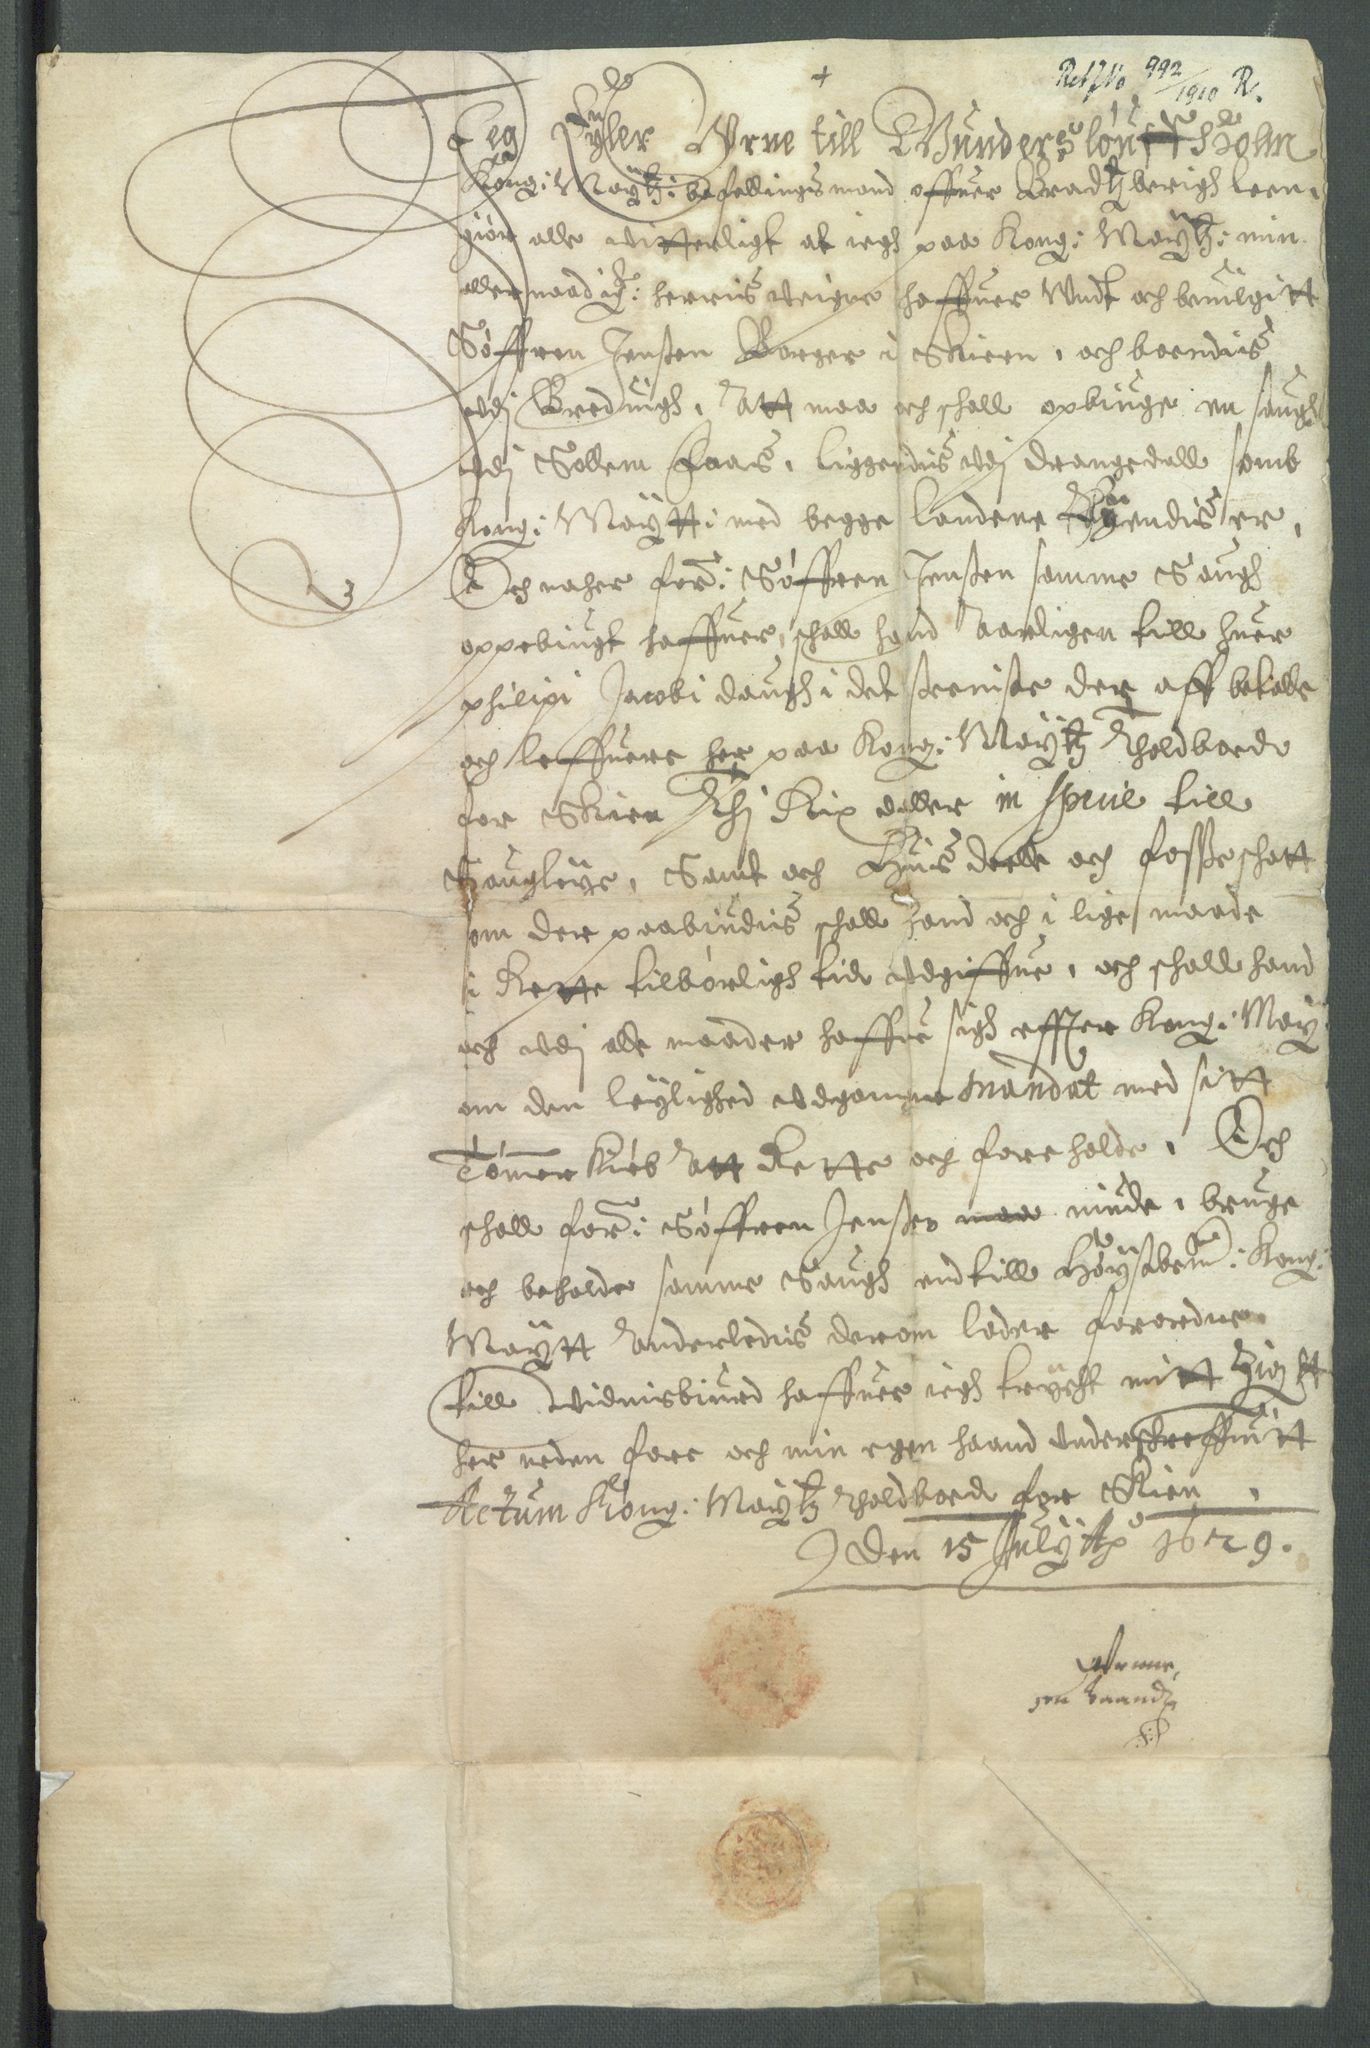 Ref No 992/1910 R.
Jeg Eÿler Vrne till Gunderslöuffsholm
Kong: Maÿtz: befellingsmand offuer Bradtzberigh leen,
giör alle vitterligt at iegh paa Kong: Maÿtz: min
aller naadigst: herris veigne haffuer Vndt och beuilgitt
Söffren Jensen Borger i Skieen, och boendis
vdj Breduigh, Att maa och schall opbiuge en saugh
vdj Sollem Faas, liggendis vdj Drangedall somb
Kong: Maÿtt: med begge Landene Eÿendis er,
Och naher for: Söffren Jensen samme Saugh
oppebiugt haffuer, schall hand Aarligen till huer
philipi Jacobi daugh i det seeniste der aff betalle
och leffuere her paa Kong: Maÿtz Tholdboed
for Skien Rix daller in specie till
Saugleÿe, Samt och Huis deelle och fosseschatt
som der paabiudis schall hand och i lige maade
i Rette tilbörligh tid vdgiffue, och schall hand
och vdj alle maader haffue sigh effter Kong: Maÿ
om den leÿlighed vdgangne Mandat med sitt
Tömmer kiöb Att Rette och foreholde, Och
schall for: Söffren Jensen niude, bruge
och beholde samme Saugh indtill Höÿstbem: Kong:
Maÿtt Anderledis derom lader forordne
till vidnisbiurd haffuer iegh trÿcht mitt Zignett
her neden fore och min egen haand vnderschreffuitt
Actum Kong: Maÿtz Tholdboed for Skien,
Den 15 Julÿ Ao 1629.
E Vrne
gen haandt